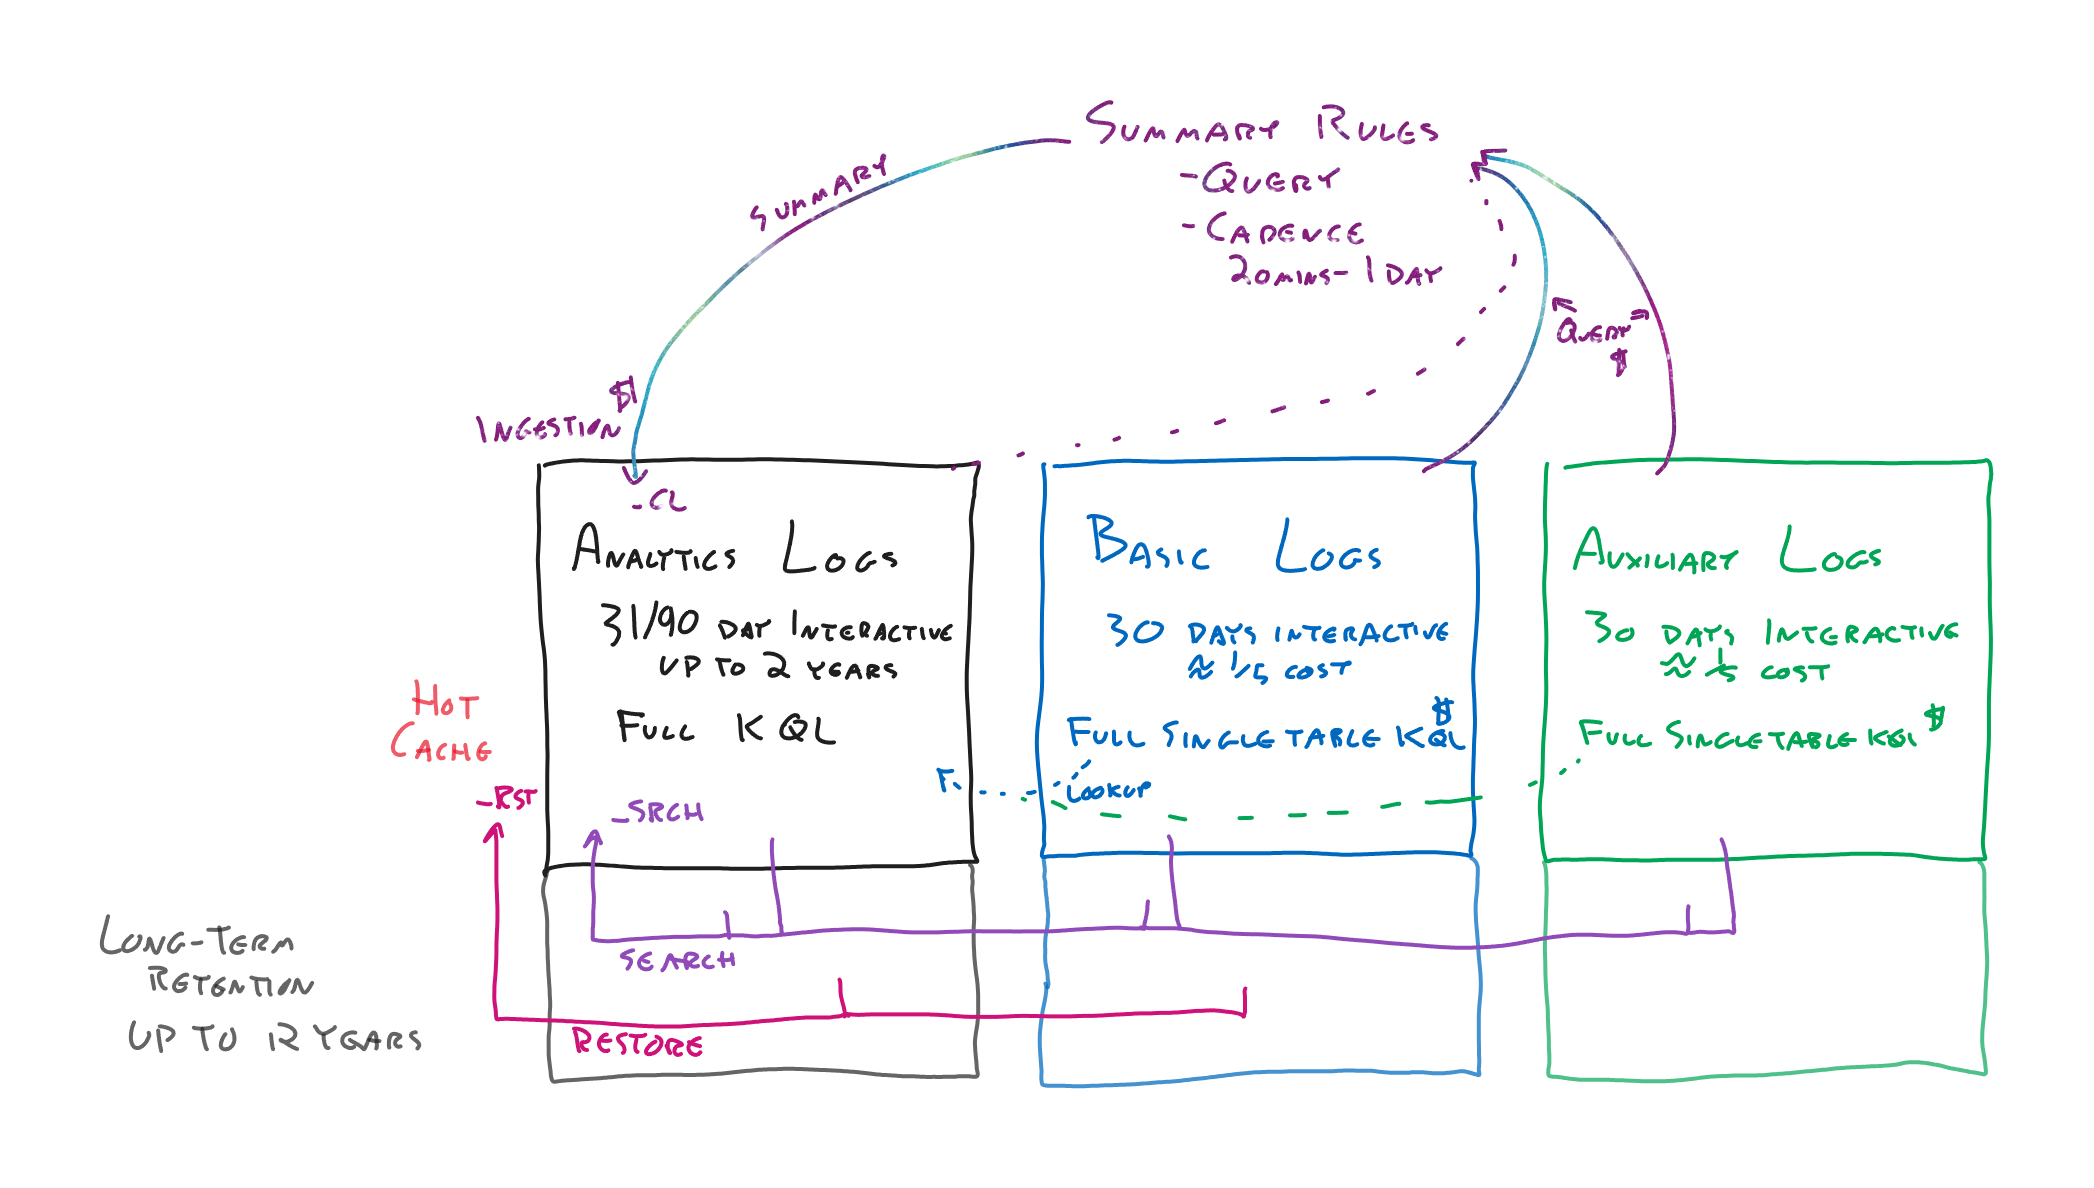 SUMMARY RULES
-QUERY
-CADENCE
20MINS-1DAY
SUMMARY
QUERY
$
$
INGESTION
_CL
ANALYTICS LOGS
31/90 DAY INTERACTIVE
UP TO 2 YEARS
FULL KQL
_SRCH
BASIC LOGS
30 DAYS INTERACTIVE
≈ 1/5 COST
$
FULL SINGLE TABLE KQL
LOOKUP
AUXILIARY LOGS
30 DAYS INTERACTIVE
≈ 1/5 COST
$
FULL SINGLE TABLE KQL
HOT
CACHE
_RST
LONG-TERM
RETENTION
UP TO 12 YEARS
SEARCH
RESTORE